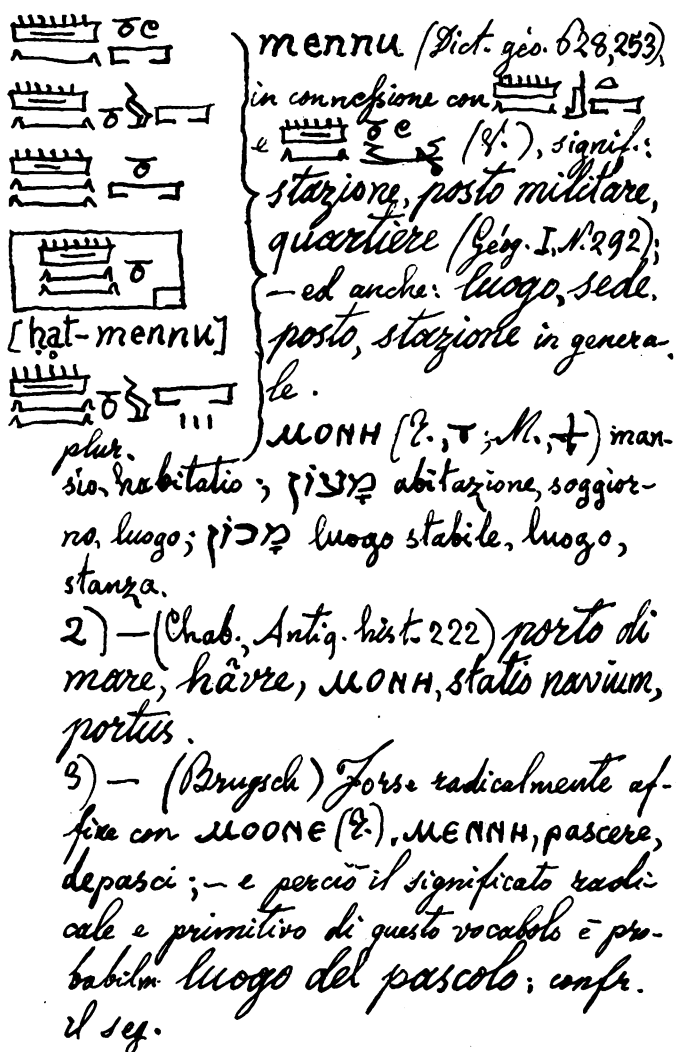 mennu (Dict. géo. 628,253),
in connessione con
e (V.), signif.:
stazione, posto militare,
quartière (Géog. I, N. 292);
— ed anche: luogo, sede,
[ḥat-mennu] posto, stazione in genera-
le.
plur. ⲙⲟⲛⲏ (T., ⲧ; M., ϯ) man-
sio, habitatio; מָעוֹן abitazione, soggior-
no, luogo; מָכוֹן luogo stabile, luogo,
stanza.
2) — (Chab., Antiq. hist. 222) porto di
mare, hâvre, ⲙⲟⲛⲏ, statio navium,
portus.
3) — (Brugsch) Forse radicalmente af-
fine con ⲙⲟⲟⲛⲉ (T.), ⲙⲉⲛⲛⲏ, pascere,
depasci; — e perciò il significato radi-
cale e primitivo di questo vocabolo è pro-
babilm. luogo del pascolo; confr.
il seg.